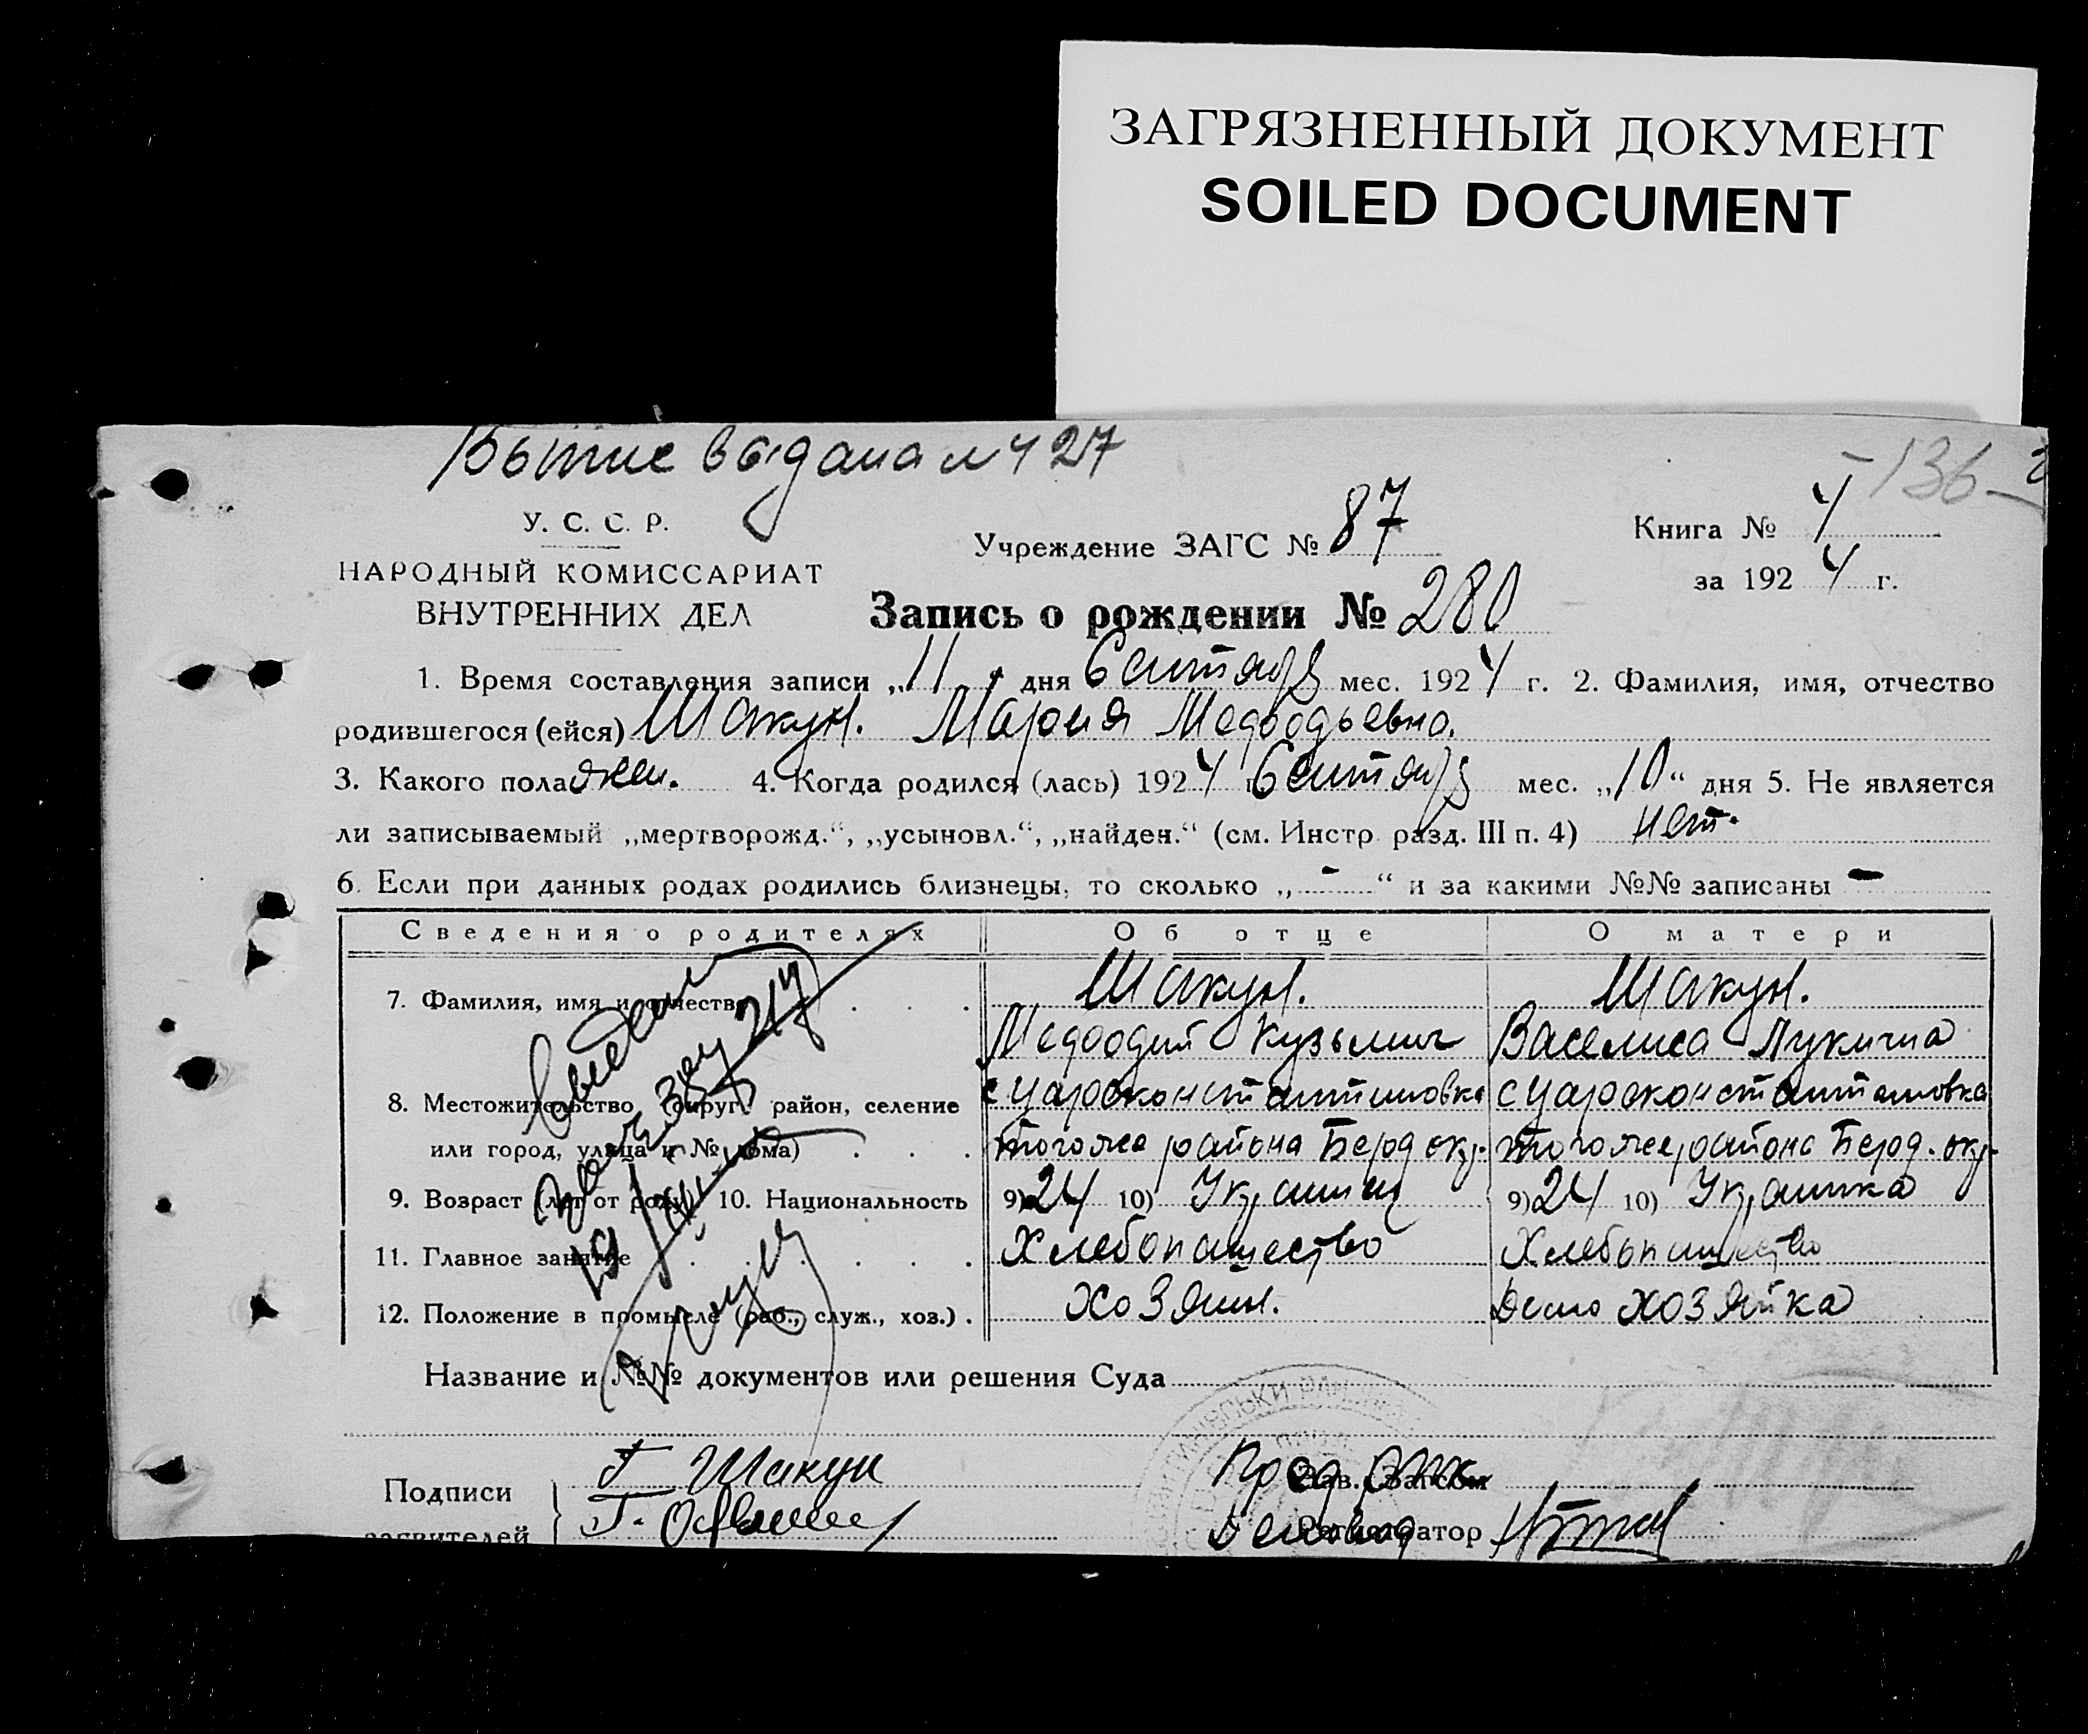 ЗАГРЯЗНЕННЫЙ ДОКУМЕНТ
SOILED DOCUMENT
выдана № 427
-136-
У. С. С. Р.
НАРОДНЫЙ КОМИССАРИАТ
ВНУТРЕННИХ ДЕЛ
Учреждение ЗАГС № 87
Книга № 4
за 192 4 г.
Запись о рождении № 280
1. Время составления записи „11" дня Сентября мес. 192 4 г. 2. Фамилия, имя, отчество
родившегося (ейся) Шакун. Мария Мефодьевна.
3. Какого пола жен. 4. Когда родился (лась) 192 4 г. Сентября мес. „10" дня 5. Не является
ли записываемый „мертворожд.", „усыновл.", „найден." (см. Инстр. разд. III п. 4) нет.
6. Если при данных родах родились близнецы, то сколько „-" и за какими №№ записаны -
Сведения о родителях Об отце О матери
7. Фамилия, имя и отчество . . . Шакун. Шакун.
Мефодий Кузьмич Васелиса Лукична
8. Местожительство (округ, район, селение с Цароконстантиновка с Цароконстантиновка
или город, улица и № дома) . . . того же района Берд окр. того же района Берд. окр.
9. Возраст (лет от роду) 10. Национальность 9) 24 10) Украинец 9) 24 10) Украинка
11. Главное занятие . . . . . . Хлебопашество Хлебопашество
12. Положение в промысле (раб., служ., хоз.) . хозяин. дом хозяйка
Название и №№ документов или решения Суда
Подписи Г Шакун Пред Зав. Загсом
заявителей } Г. Регистратор